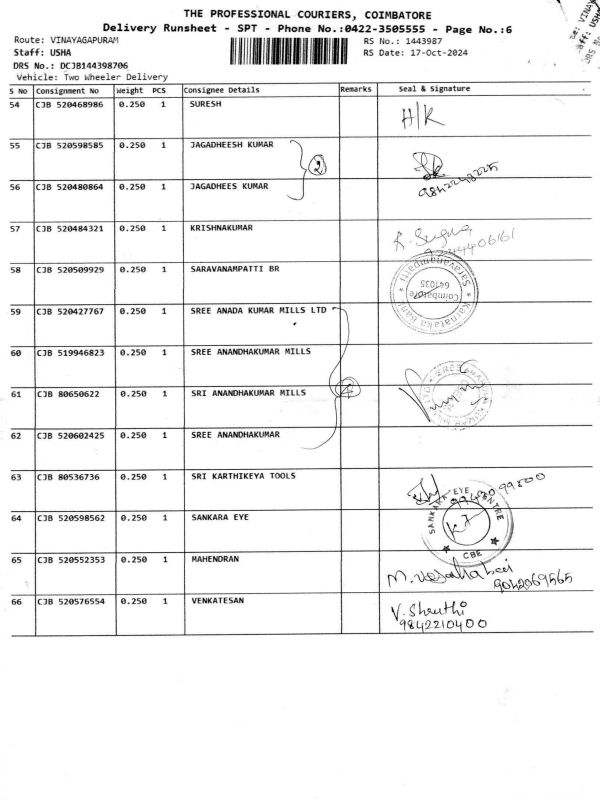 THE PROFESSIONAL COURIERS, COIMBATORE
Delivery Runsheet - SPT - Phone No.:0422-3505555 - Page No.:6
Route: VINAYAGAPURAM RS No.: 1443987
Staff: USHA RS Date: 17-Oct-2024
DRS No.: DCJB144398706
Vehicle: Two Wheeler Delivery
S No Consignment No Weight PCS Consignee Details Remarks Seal & Signature
54 CJB 520468986 0.250 1 SURESH H/K
55 CJB 520598585 0.250 1 JAGADHEESH KUMAR
2
56 CJB 520480864 0.250 1 JAGADHEES KUMAR
57 CJB 520484321 0.250 1 KRISHNAKUMAR
58 CJB 520509929 0.250 1 SARAVANAMPATTI BR
Karnataka bank Saravanampatti Coimbatore 641035
59 CJB 520427767 0.250 1 SREE ANADA KUMAR MILLS LTD
60 CJB 519946823 0.250 1 SREE ANANDHAKUMAR MILLS
4
61 CJB 80650622 0.250 1 SRI ANANDHAKUMAR MILLS
62 CJB 520602425 0.250 1 SREE ANANDHAKUMAR
63 CJB 80536736 0.250 1 SRI KARTHIKEYA TOOLS
64 CJB 520598562 0.250 1 SANKARA EYE
SANKARA EYE CENTRE CBE
65 CJB 520552353 0.250 1 MAHENDRAN
9042069565
66 CJB 520576554 0.250 1 VENKATESAN V. Shruthi
9842210400